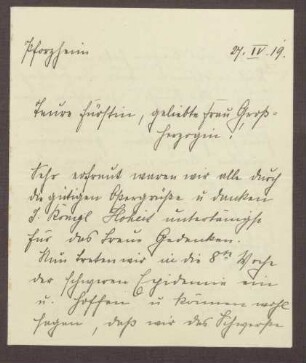 Pforzheim 27. IV. 19.
Teure Fürstin, geliebte Frau Groß-
herzogin!
Sehr erfreut waren wir alle durch
die gütigen Ostergrüße u. danken
I. Königl. Hoheit untertänigst
für das treue Gedenken.
Nun treten wir in die 8te Woche
der schweren Epidemie ein
u. hoffen u. können wohl
sagen, daß wir das Schwerste